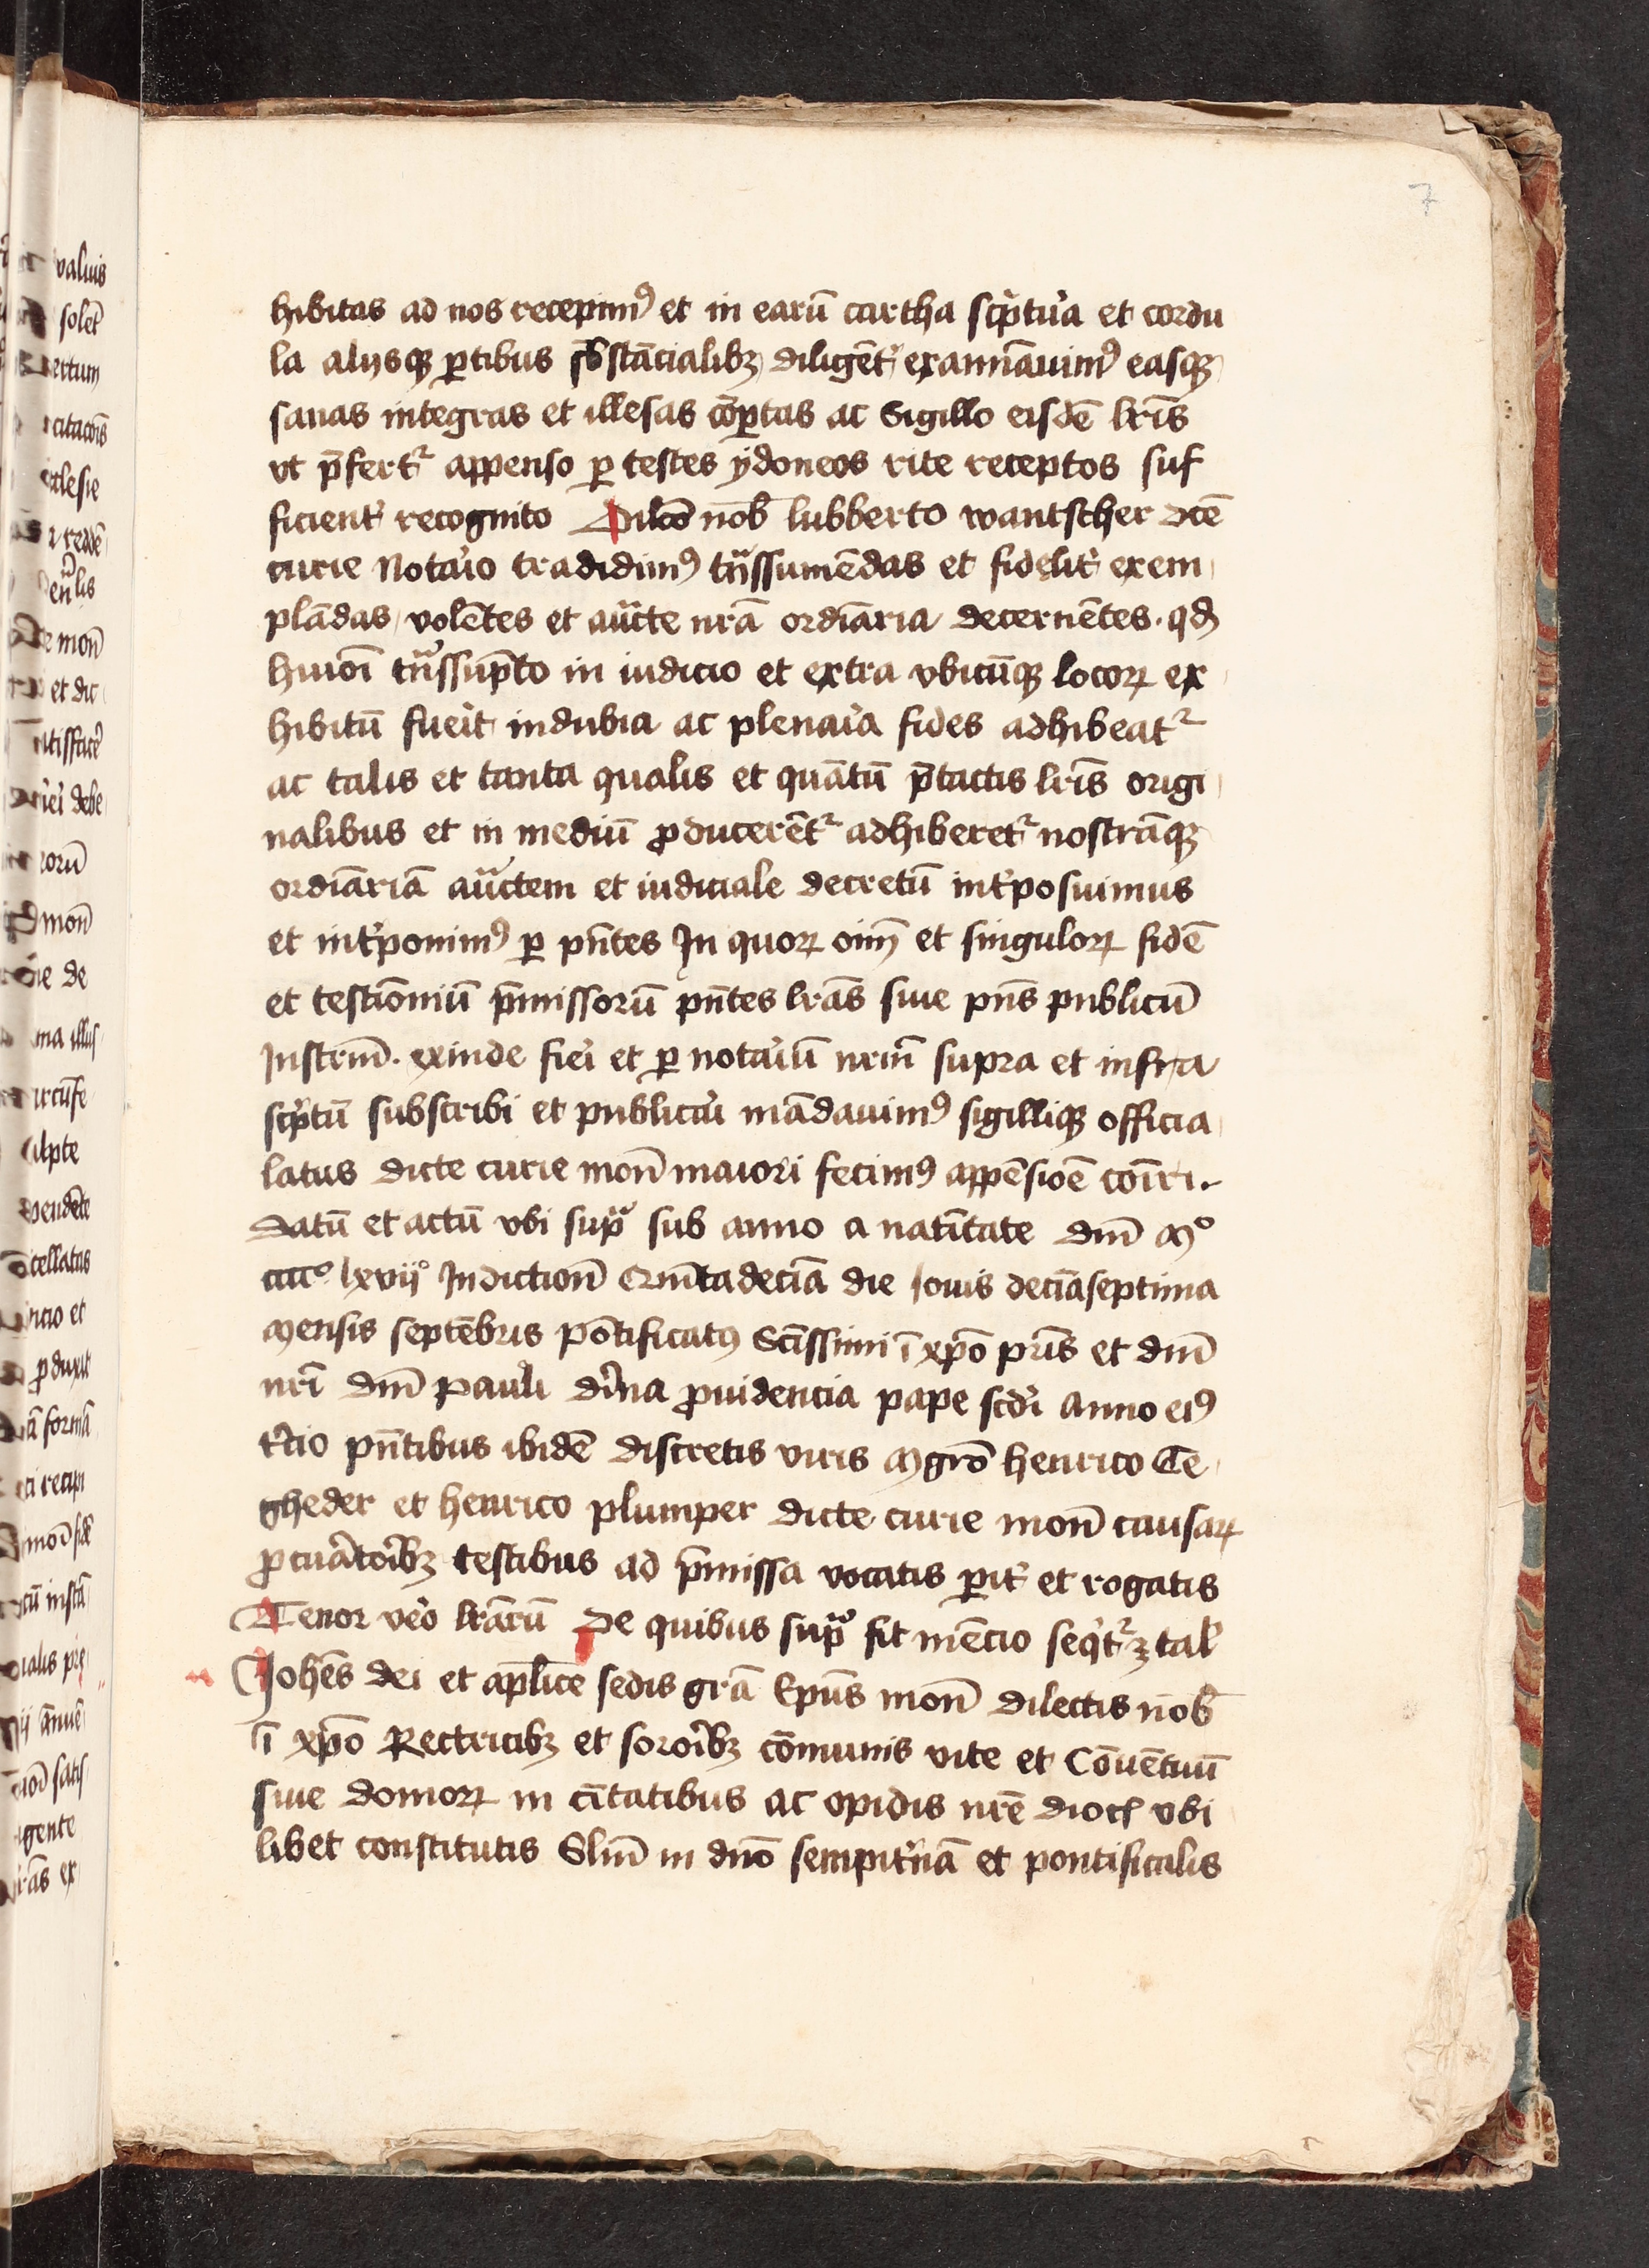 7
hibitas ad nos recepim⁹ et in earū cartha sc͛ptu͛a et cordu
la alijsqꝫ ꝑtibus sb̄stācialibꝫ diligēt͛ examīauim⁹ easqꝫ
sanas integras et illesas cōꝑtas ac Sigillo eisdē lr̄is
vt p̄fert᷑ appenso ꝑ testes ydoneos rite receptos suf
ficient͛ recognito Dilc̄o nob̄ lubberto wantscher dc̄e
curie Nota͛io tradidim⁹ tͣnssumēdas et fidelit͛ exem
plādas volētes et auc̄te nr̄a ordīaria decernētes · qđ
huiōi tͣnssūpto in iudicio et extra vbicūqꝫ locoꝝ ex
hibitū fue͛it indubia ac plena͛ia fides adhibeat᷑
ac talis et tanta qualis et quātū p̄tactis lr̄is origi
nalibus et in mediū ꝓducerēt᷑ adhiberet᷑ nostrāqꝫ
ordīariā auc̄tem et iudiciale decretū int͛posuimus
et int͛ponim⁹ ꝑ pn̄tes In quoꝝ oīm et singuloꝝ fidē
et testīoniū p̄missorū pn̄tes lr̄as siue pn̄s publicū
Instrm̄ · exinde fie͛i et ꝑ nota͛iū nr̄m supra et infra
sc͛ptū subscribi et publica͛i mādauim⁹ sigilliqꝫ officia
latus dicte curie mon̄ maiori fecim⁹ appēsiōe cōīri ·
Datū et actū vbi supͣ sub anno a natiītate dn̄i Mº
ccccº lxvijº Indiction̄ Quītadecīa die Iouis decīaseptima
Mensis septēbris Pōtificatꝰ Sctīssimi ī xp̄o pr̄is et dn̄i
nr̄i dn̄i Pauli di͛na ꝓuidencia pape scđi Anno ei⁹
t͛cio pn̄tibus ibidē discretis viris Mgr̄o henrico Te
gheder et henrico plumper dicte curie mon̄ causaꝝ
ꝓcua͛to͛ibꝫ testibus ad p̄missa vocatis ꝑit͛ et rogatis
Tenor ve͛o lr̄arū De quibus supͣ fit mēcio seqͥt᷑ ꝫ tal͛
Joh̄es dei et apl̄ice sedis gr̄a Ep̄us mon̄ dilectis nob̄
ī xp̄o Rectricibꝫ et soro͛ibꝫ cōmunis vite et Cōuētuū
siue domoꝝ in cītatibus ac opidis nr̄e dioc̄ vbi
libet constitutis Slm̄ in dn̄o sempit͛nā et pontificalis